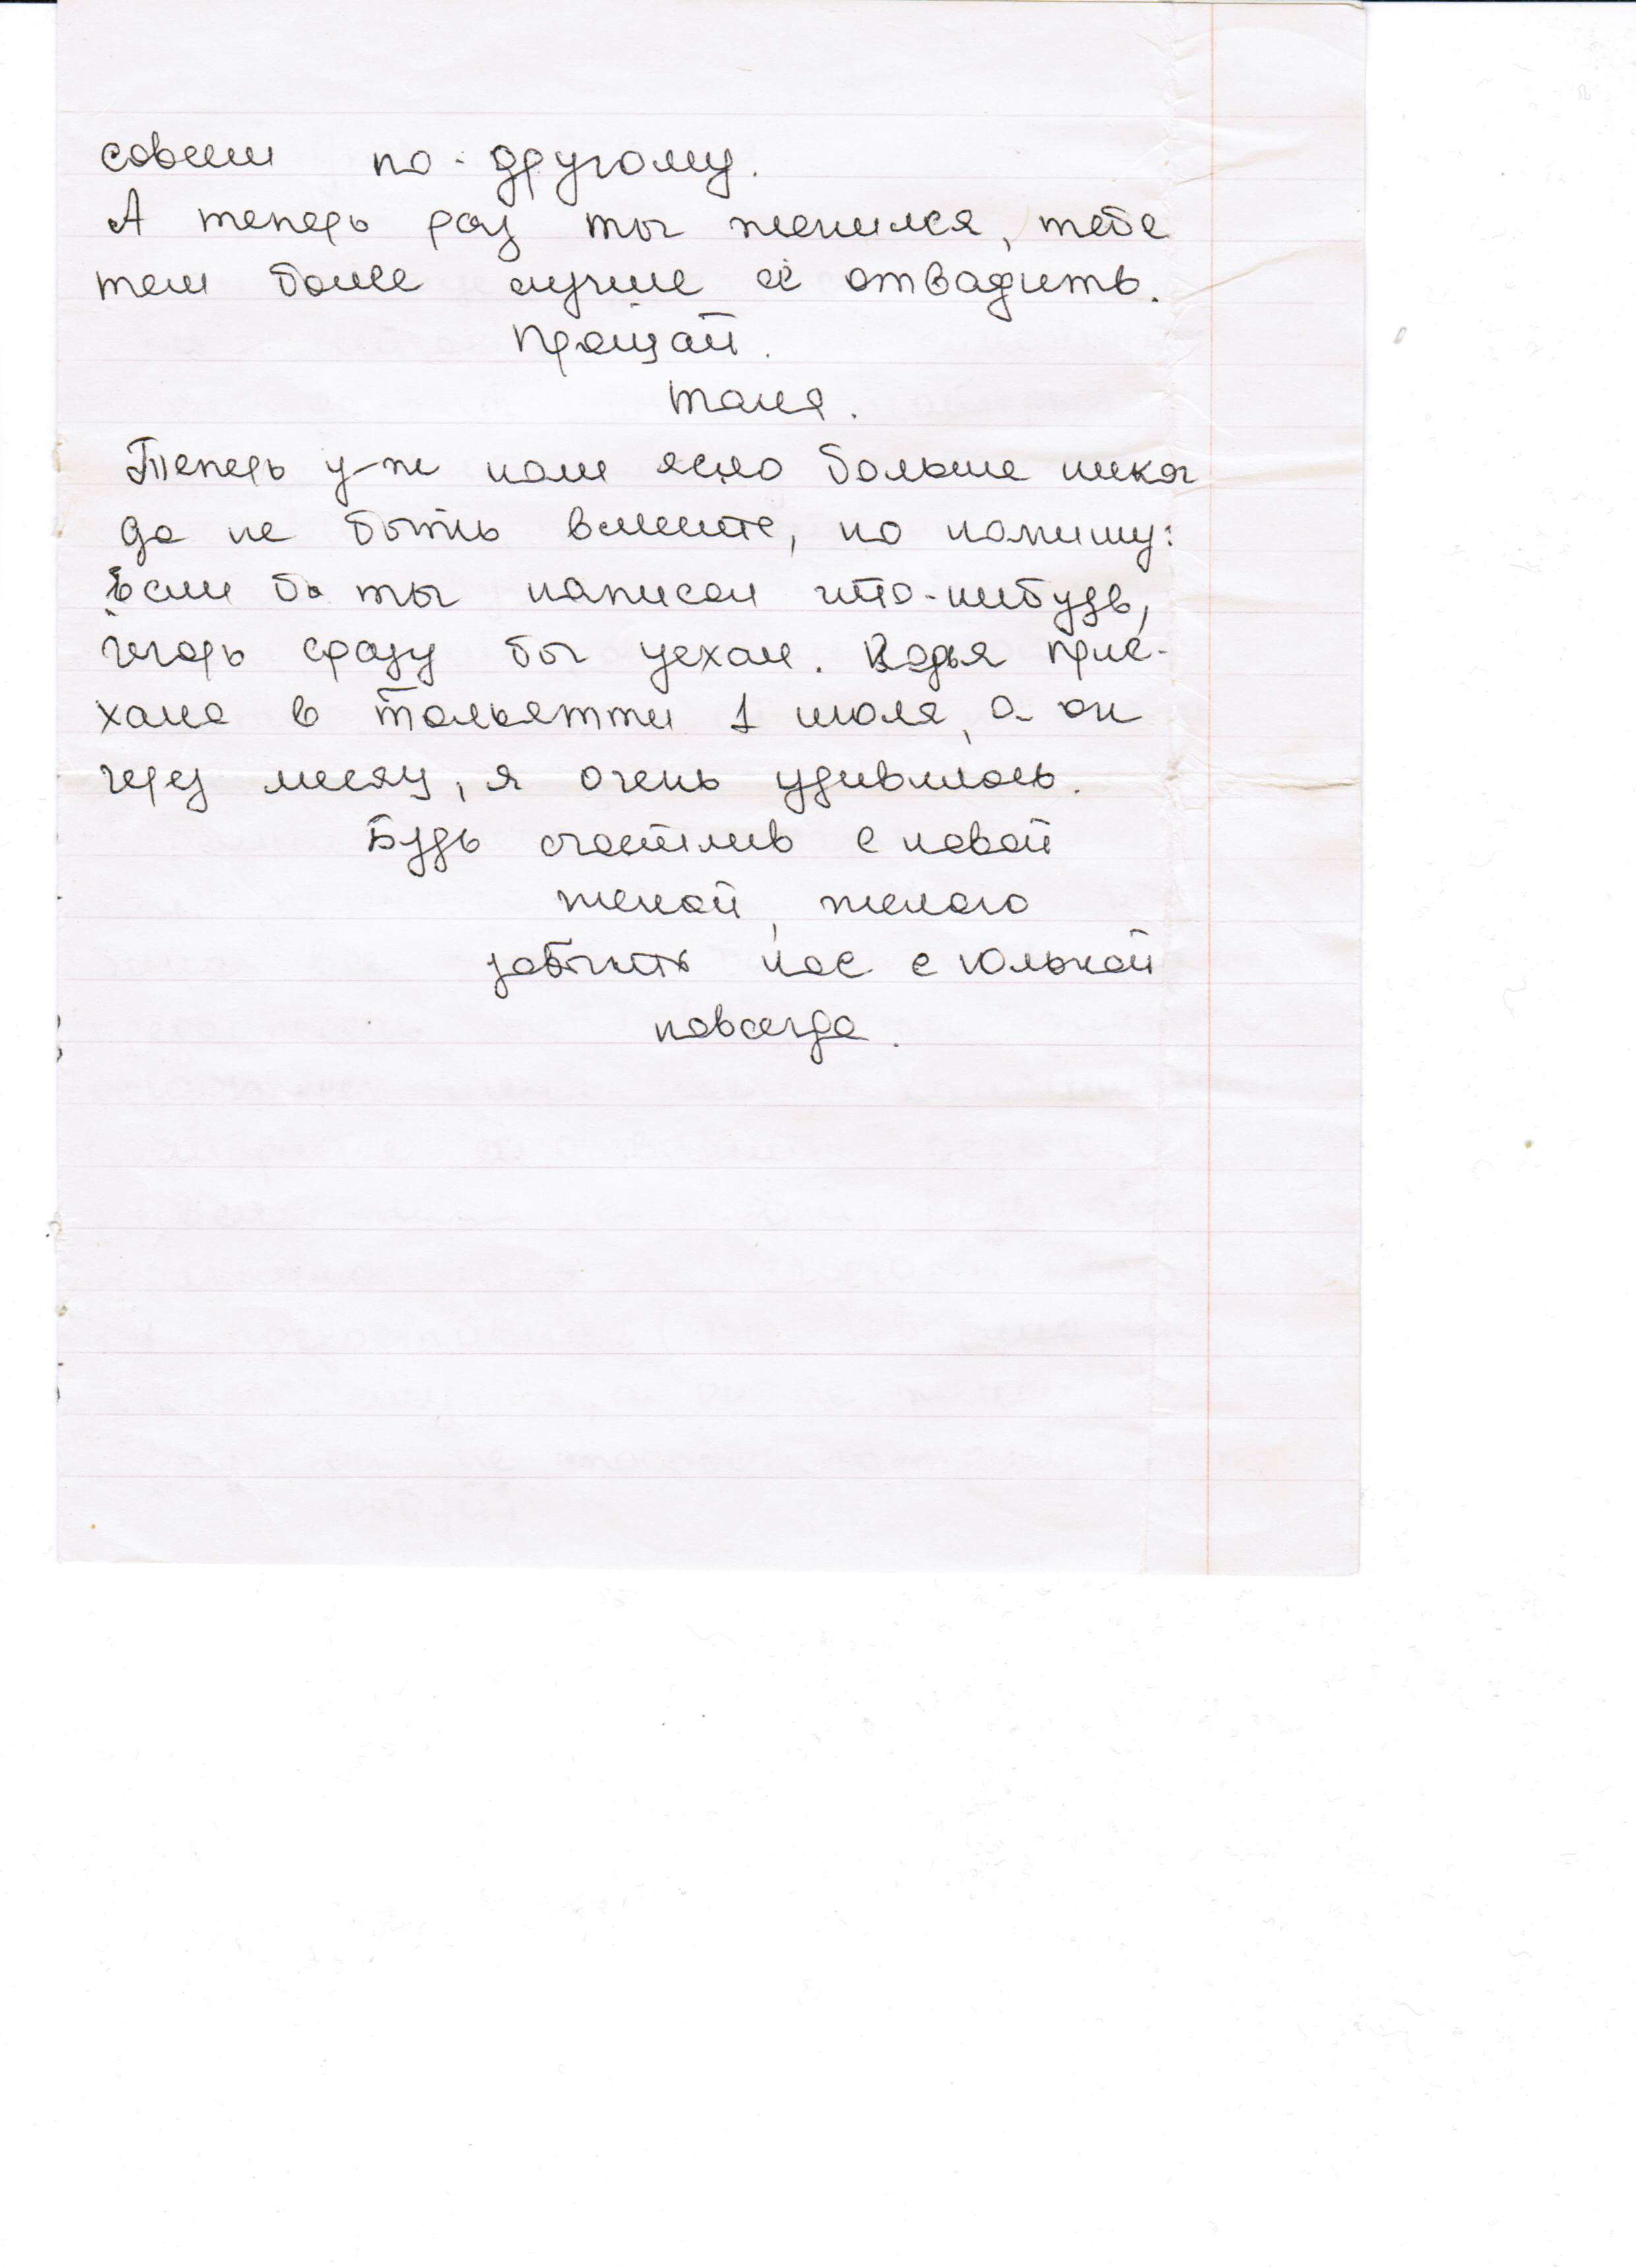 совсем по-другому.
А теперь раз ты женился, тебе
тем более лучше её отвадить.
Прощай.
Таня.
Теперь уж нам ясно больше никог
да не быть вместе, но напишу:
Если бы ты написал что-нибудь,
Игорь сразу бы уехал. Ведь я прие-
хала в Тольятти 1 июля, а он
через месяц, я очень удивилась.
Будь счастлив с новой
женой, желаю
забыть нас с Юлькой
навсегда.